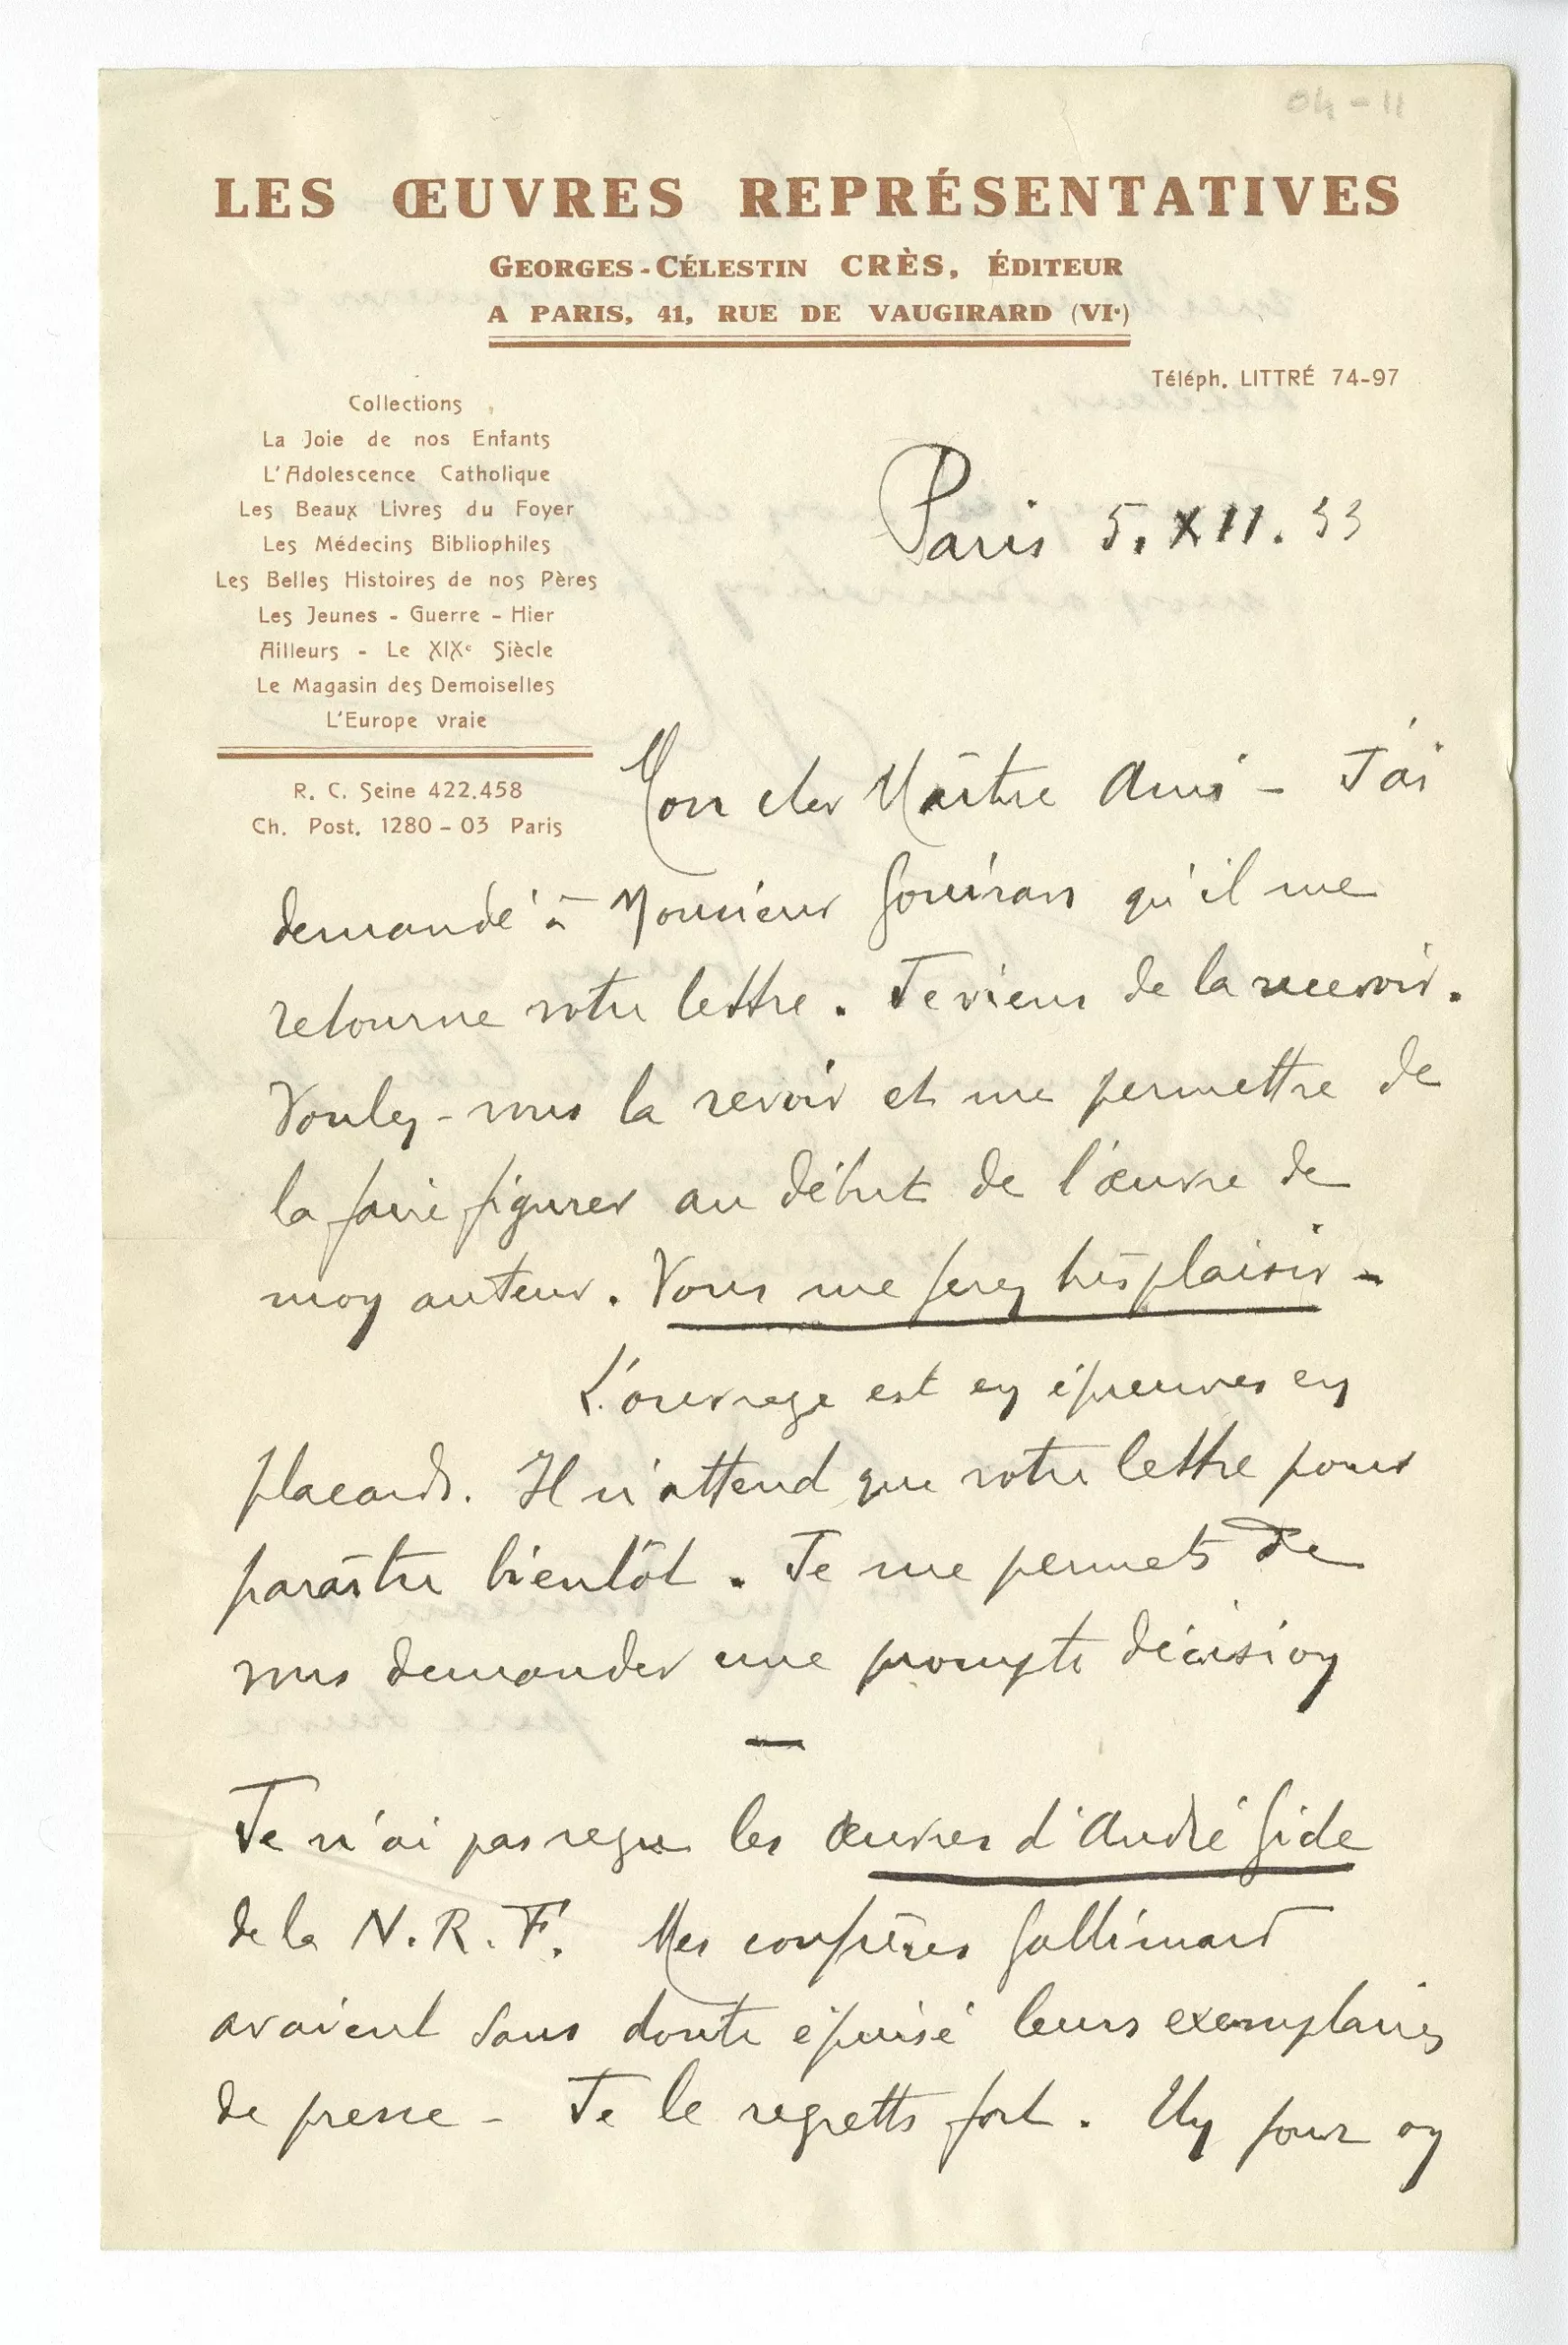 LES ŒUVRES REPRÉSENTATIVES
GEORGES-CÉLESTIN CRÈS, ÉDITEUR
A PARIS, 41, RUE DE VAUGIRARD (VIe)
Téléph. LITTRÉ 74-97
Collections
La Joie de nos Enfants
L'Adolescence Catholique
Les Beaux Livres du Foyer
Les Médecins Bibliophiles
Les Belles Histoires de nos Pères
Les Jeunes - Guerre - Hier
Ailleurs - Le XIXe Siècle
Le Magasin des Demoiselles
L'Europe vraie
R. C. Seine 422.458
Ch. Post. 1280-03 Paris
Paris 5.XII.33
Mon cher Maître Ami - J'ai
demandé à Monsieur Gouiran qu'il me
retourne votre lettre. Je viens de la recevoir.
Voulez-vous la revoir et me permettre de
la faire figurer au début de l'œuvre de
mon auteur. Vous me ferez très plaisir -
L'ouvrage est en épreuves en
placards. Il n'attend que votre lettre pour
paraître bientôt. Je me permets de
vous demander une prompte décision
—
Je n'ai pas reçu les œuvres d'André Gide
de la N.R.F. Mes confrères Gallimard
avaient sans doute épuisé leurs exemplaires
de presse - Je le regrette fort. Un jour on